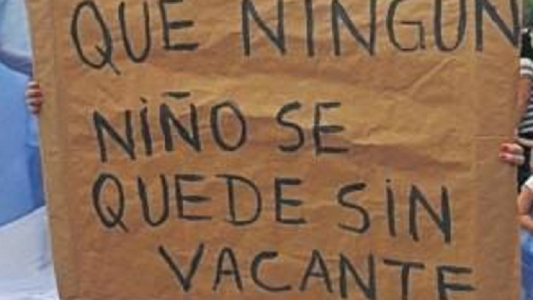 QUE NINGUN
NIÑO SE
QUEDE SIN
VACANTE